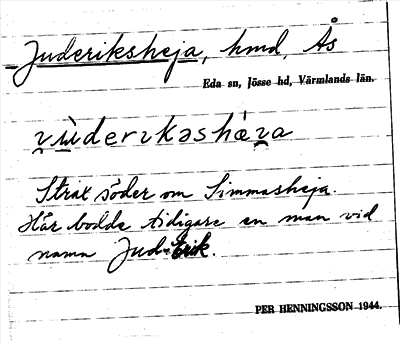 Juderiksheja, hmd, Ås
Eda sn, Jösse hd, Värmlands län.
Strax söder om Simmasheja.
Här bodde tidigare en man vid
namn Jud-Erik.
PER HENNINGSSON 1944.